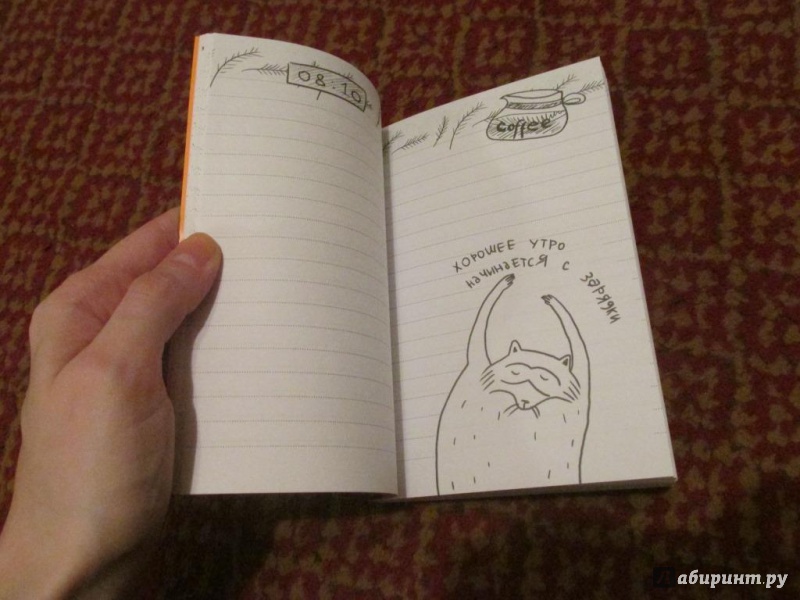 08.10
coffee
ХОРОШЕЕ УТРО
НАЧИНАЕТСЯ С ЗАРЯДКИ
Лабиринт.ру